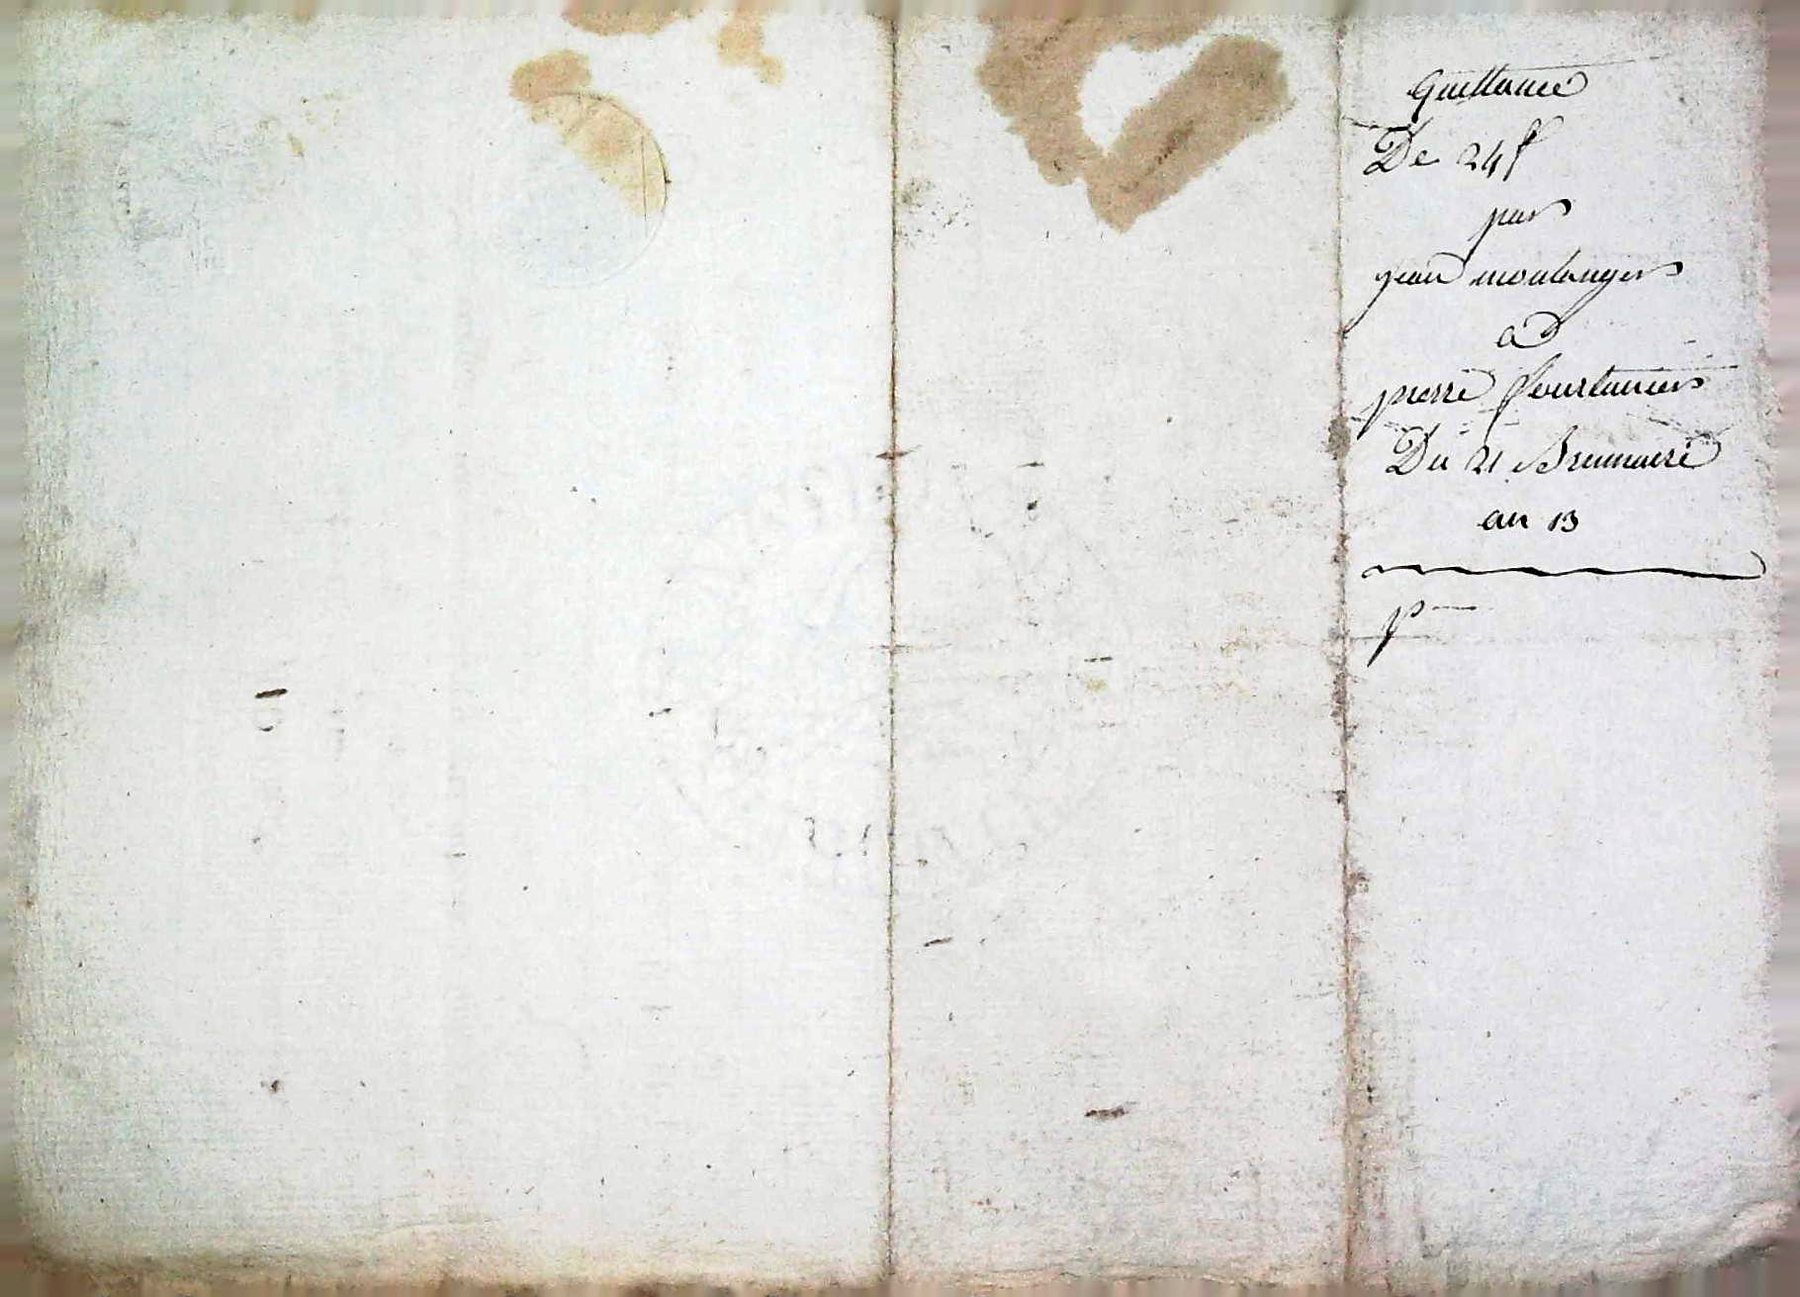 Quittance
De 24 ff
par
jean moulengers
a
pierre ffourtaniers
Du 21 Brumaire
an 13
p